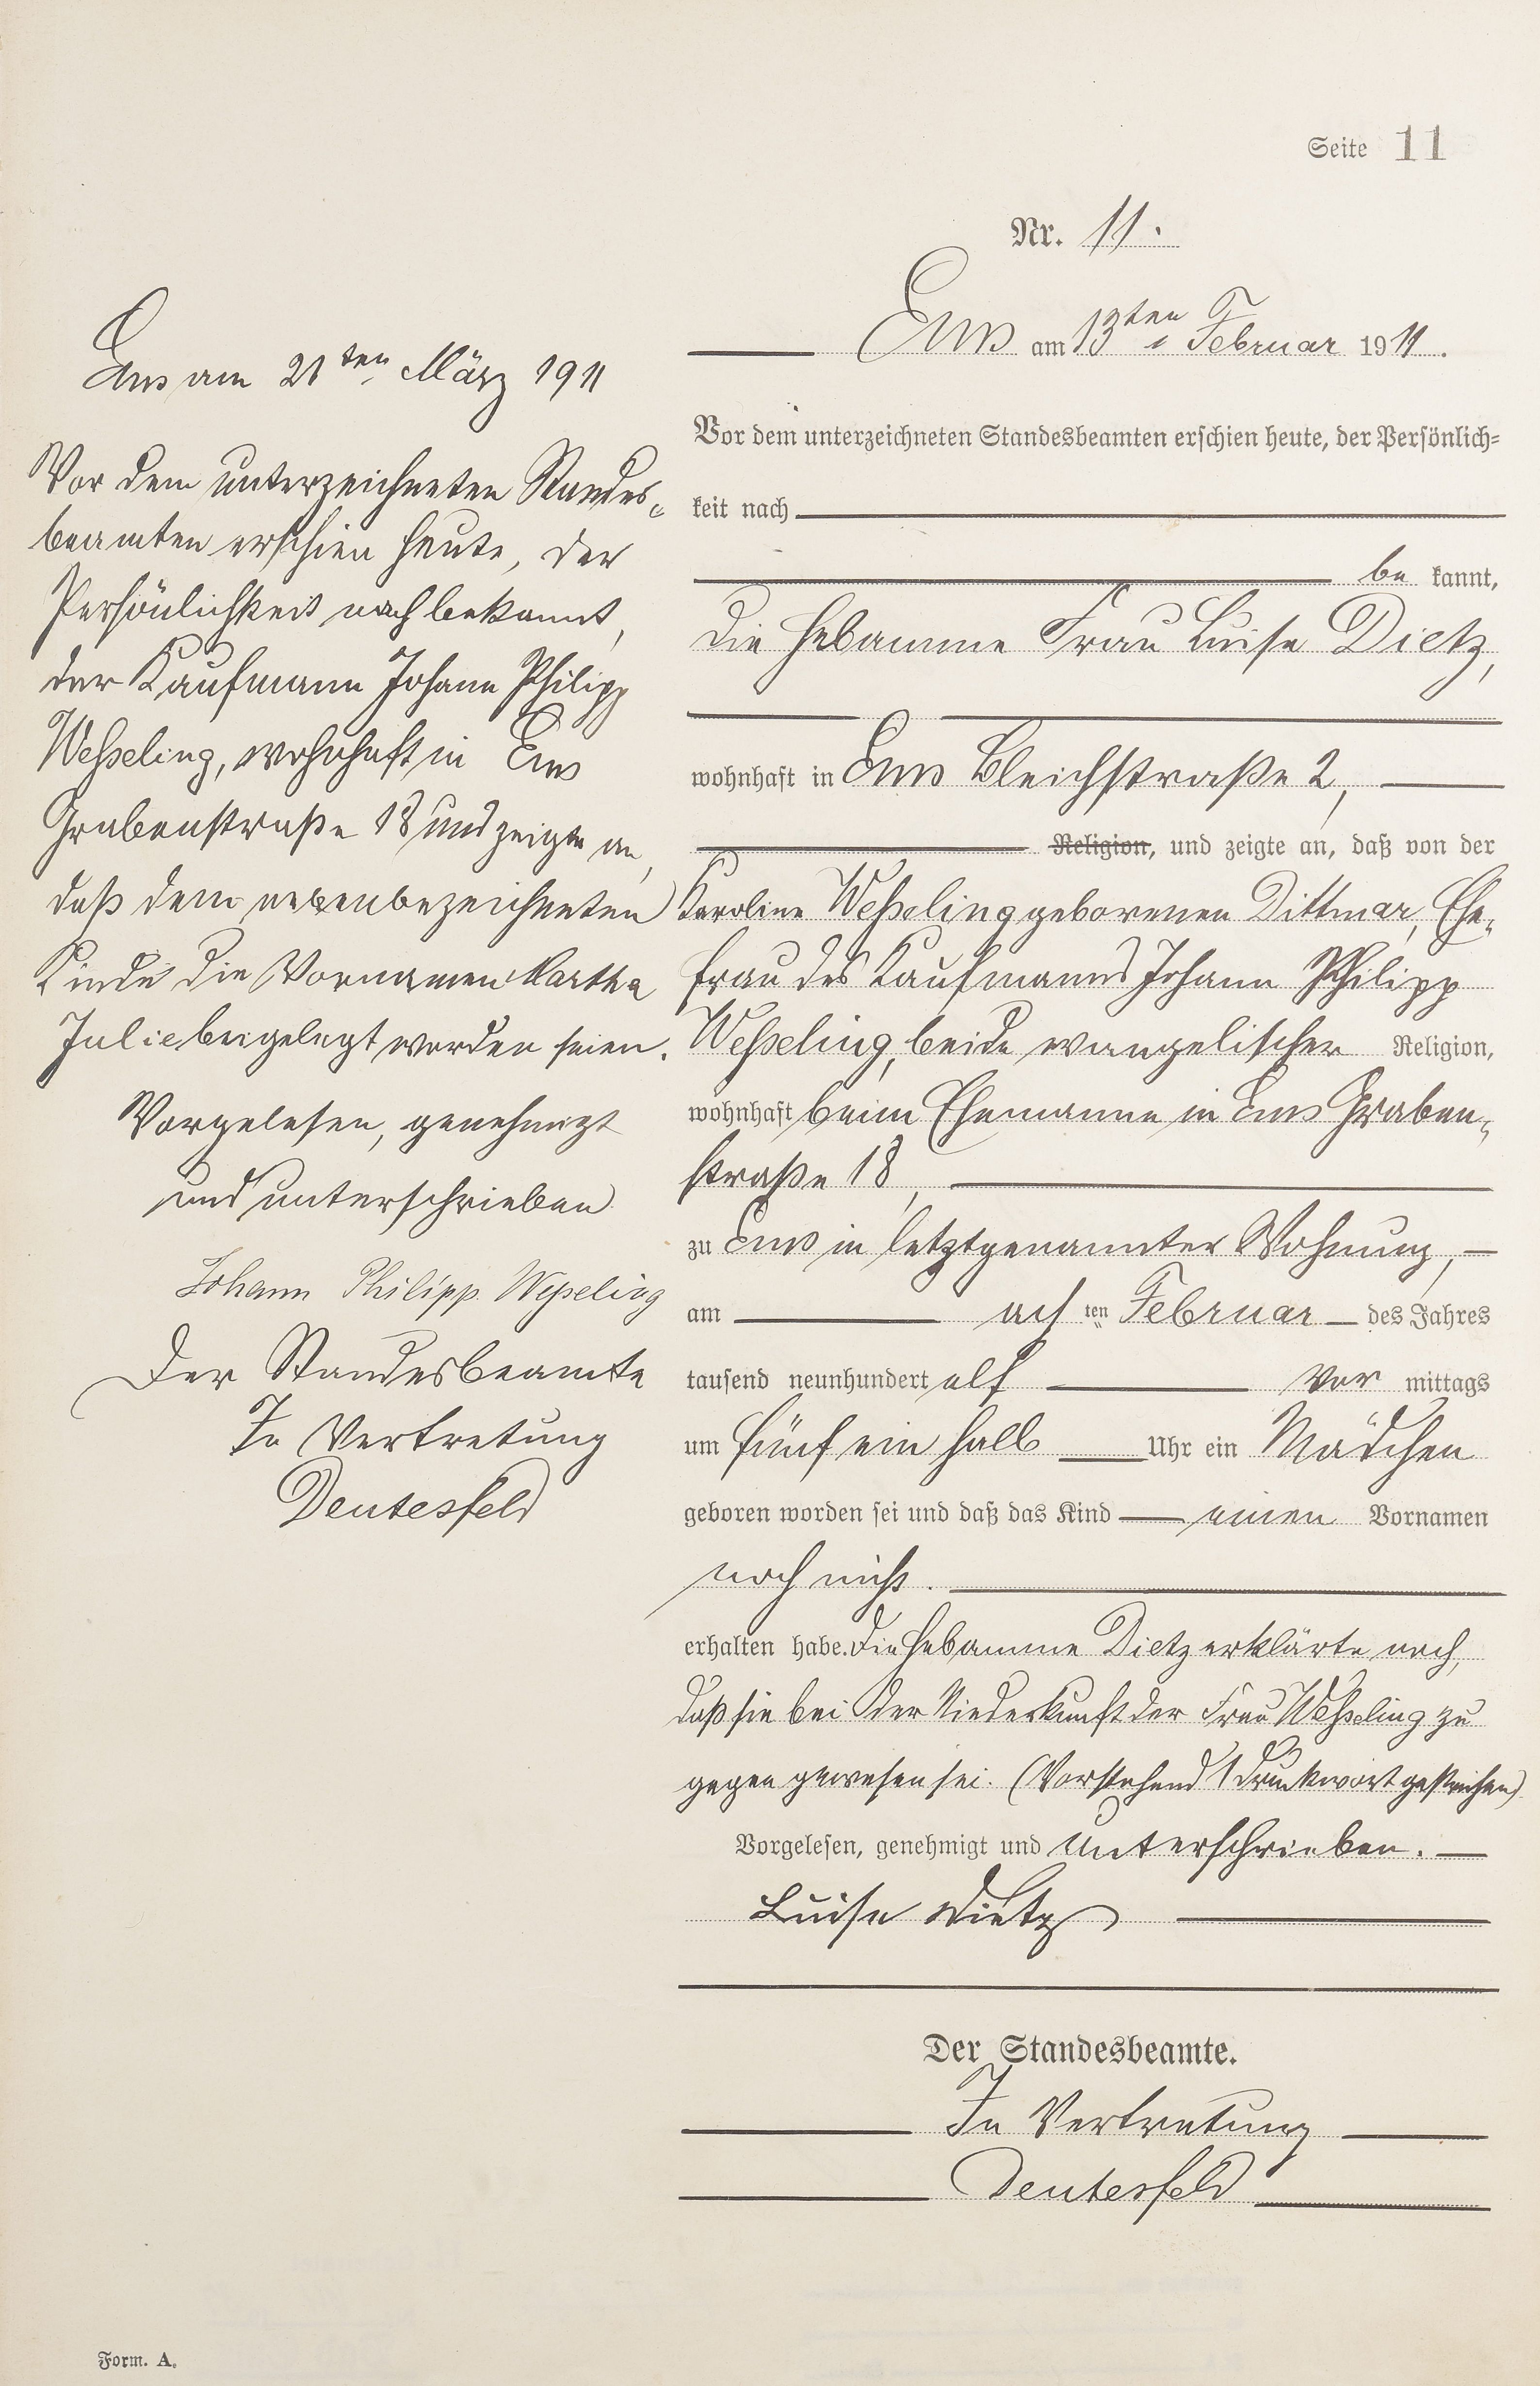 Seite 11
Nr. 11.
Ems am 13ten Februar 1911.
Vor dem unterzeichneten Standesbeamten erschien heute, der Persönlich-
keit nach
be kannt,
die Hebamme Frau Luise Dietz,
wohnhaft in Ems Bleichstraße 2,
Religion, und zeigte an, daß von der
Karoline Weßeling geborenen Dittmar, Ehe-
frau des Kaufmanns Johann Philipp
Weßeling, beide evangelischer Religion,
wohnhaft beim Ehemanne in Ems Graben-
straße 18,
zu Ems in letztgenannter Wohnung,
am acht ten Februar des Jahres
tausend neunhundert elf Vor mittags
um fünf ein halb Uhr ein Mädchen
geboren worden sei und daß das Kind einen Vornamen
noch nicht.
erhalten habe. Die Hebamme Dietz erklärte noch,
daß sie bei der Niederkunft der Frau Weßeling zu
gegen gewesen sei. (Vorstehend 1 Druckwort gestrichen)
Vorgelesen, genehmigt und unterschrieben.
Luise Dietz
Der Standesbeamte.
In Vertretung
Deutesfeld
Ems am 21ten März 1911
Vor dem unterzeichneten Standes-
beamten erschien heute, der
Persönlichkeit nach bekannt,
der Kaufmann Johann Philipp
Weßeling, wohnhaft in Ems
Grabenstraße 18 und zeigte an,
daß dem nebenbezeichneten
Kinde die Vornamen Martha
Julie beigelegt worden seien.
Vorgelesen, genehmigt
und unterschrieben
Johann Philipp Weßeling
Der Standesbeamte
In Vertretung
Deutesfeld
Form. A.